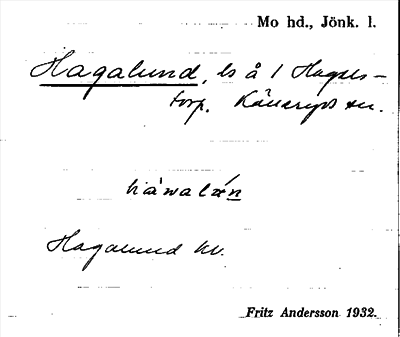 Mo hd., Jönk. l.
Hagalund, ls å 1 Hagels-
torp. Källeryds sn.
hàwalán
Hagalund kv.
Fritz Andersson 1932.